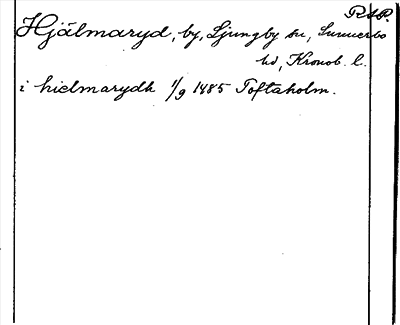 R.A.P.
Hjälmaryd, by, Ljungby sn, Sunnerbo
hd, Kronob. l.
i hielmarydh 1/9 1485 Toftaholm.